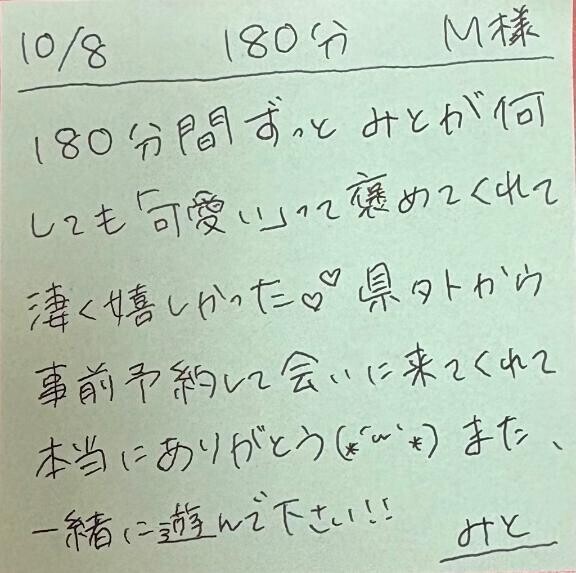 10/8 180分 M様
180分間ずっとみとが何
しても「可愛い」って褒めてくれて
凄く嬉しかった♡♡県外から
事前予約して会いに来てくれて
本当にありがとう(*´ω`*)また、
一緒に遊んで下さい!!
みと